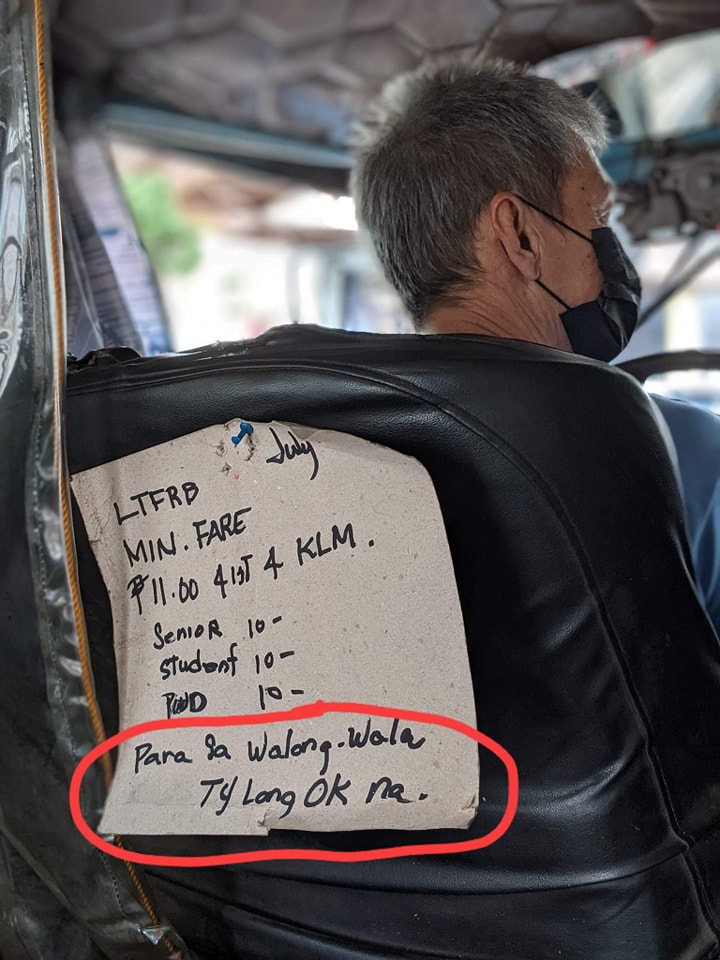 July
LTFRB
MIN. FARE
₱11.00 4 1st 4 KLM.
Senior 10-
Student 10-
PWD 10-
Para sa walang-wala
TY Lang OK na.